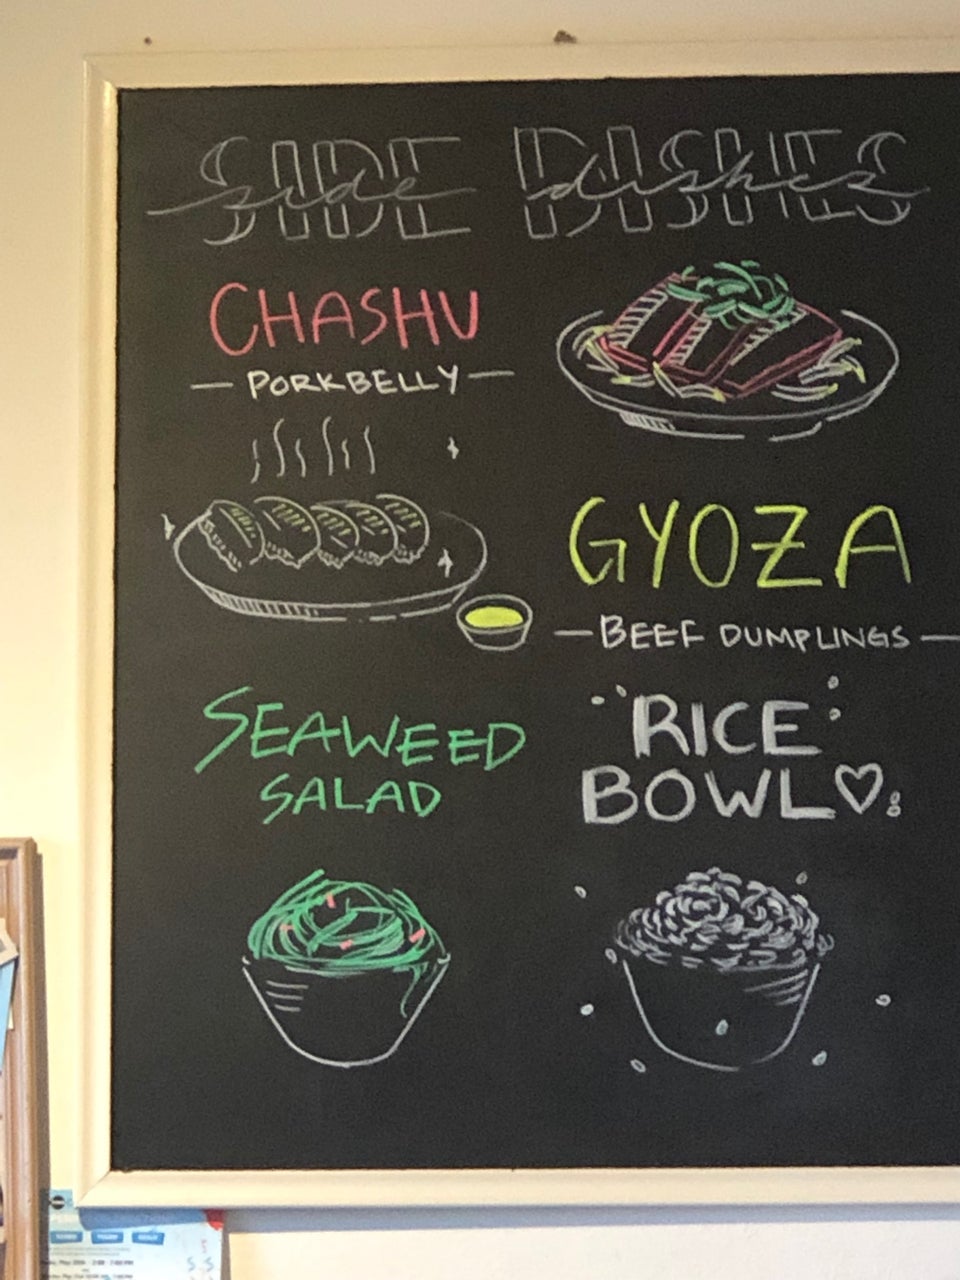 SIDE DISHES
side dishes
CHASHU
PORKBELLY
GYOZA
BEEF DUMPLINGS
SEAWEED
SALAD
RICE
BOWL♡